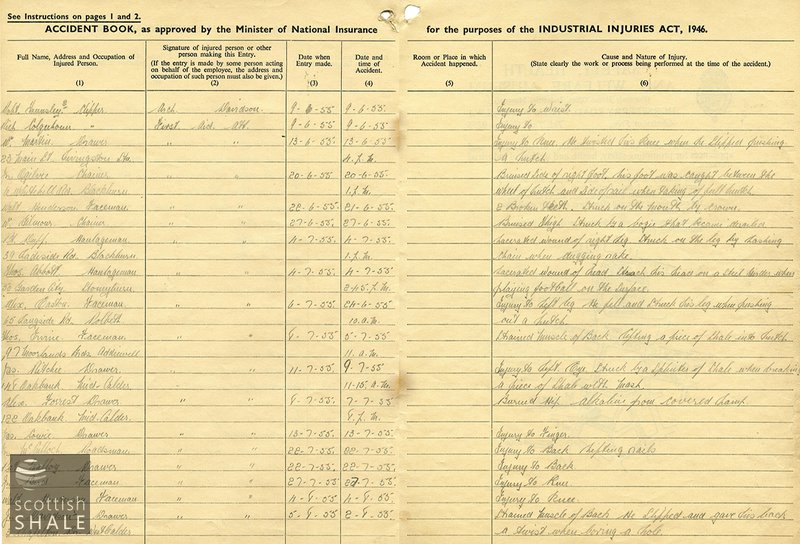 See Instructions on pages 1 and 2.
ACCIDENT BOOK, as approved by the Minister of National Insurance for the purposes of the INDUSTRIAL INJURIES ACT, 1946.
Full Name, Address and Occupation of Injured Person.
(1)
Signature of injured person or other person making this Entry.
(If the entry is made by some person acting on behalf of the employee, the address and occupation of such person must also be given.)
(2)
Date when Entry made.
(3)
Date and time of Accident.
(4)
Room or Place in which Accident happened.
(5)
Cause and Nature of Injury.
(State clearly the work or process being performed at the time of the accident.)
(6)
Robt. Arch. Davidson. 9-6-55. 9-6-55. Injury to wrist.
" First Aid Att. 9-6-55. 9-6-55. Injury to
Martin Drawer " " 13-6-55 13-6-55. Injury to Knee. He twisted his Knee when he slipped pushing
23 Main St. Livingston Stn. a hutch.
Ogilvie Chainer " " 20-6-55 20-6-55. Bruised side of right foot, his foot was caught between the
Blackburn 1 p.m. wheel of hutch and side of rail when taking of full hutch
Henderson Faceman " " 22-6-55. 21-6-55. 2 Broken teeth. Struck on the mouth by crown.
Gilmour Chainer " " 27-6-55 27-6-55. Bruised thigh. Struck by a bogie that became
Haulageman " " 4-7-55. 4-7-55. Lacerated wound of right leg. Struck on the leg by lashing
Rd. Blackburn. 1 p.m. chain when
Thos. Abbott. Haulageman " " 4-7-55. 4-7-55. Lacerated wound of head. Struck his head on a steel girder when
53 Garden City Stoneyburn. 2.45 p.m. playing football on the surface.
Alex. Easton Faceman " " 6-7-55. 24-6-55. Injury to left leg. He fell and struck his leg when pushing
65 Langside Rd. Polbeth 10.a.m. out a hutch.
Thos. Irvine Faceman " " 8-7-55 5-7-55. Strained muscle of Back. Lifting a piece of shale into hutch
97 Moorlands Addiewell 11.a.m.
Jas. Ritchie Drawer. " " 11-7-55. 9-7-55. Injury to left Eye. Struck by a splinter of shale when breaking
148 Oakbank Mid-Calder 11-15 a.m. a piece of shale with mash.
Alex. Forrest Drawer " " 8-7-55. 7-7-55. Burned Hip. alkaline from covered lamp.
122 Oakbank Mid Calder. 8 p.m.
Jas. Drawer " " 13-7-55. 13-7-55. Injury to Finger.
Roadsman " " 22-7-55. 22-7-55. Injury to Back shifting rails
Drawer " " 22-7-55. 22-7-55. Injury to Back.
Faceman " " 27-7-55 27-7-55. Injury to Knee.
Faceman " " 4-8-55 4-8-55. Injury to Knee.
Drawer " " 5-8-55. 2-8-55. Strained muscle of Back. He slipped and gave his back
Calder a twist when boring a hole.
scottish
SHALE